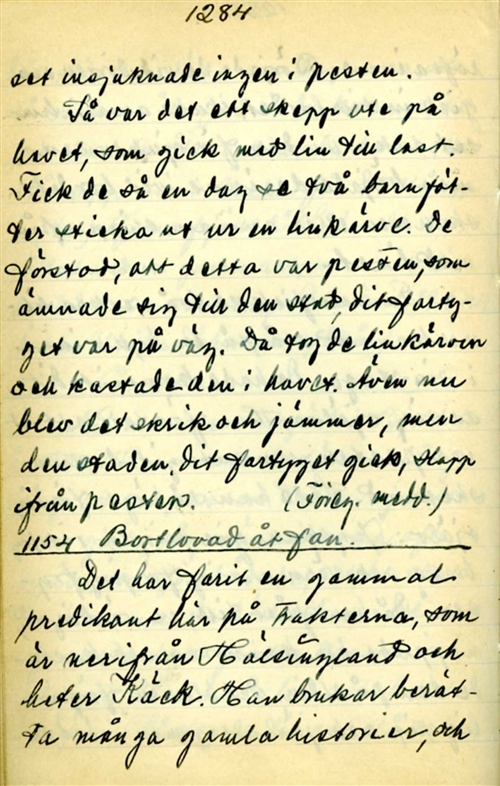 1284
set insjuknade ingen i pesten.
Så var det ett skepp ute på
havet, som gick med lin till last.
Fick de så en dag se två barnföt-
ter sticka ut ur en linkärve. De
förstod, att detta var pesten, som
ämnade sig till den stad, dit farty-
get var på väg. Då tog de linkärven
och kastade den i havet. Även nu
blev det skrik och jämmer, men
den staden, dit fartyget gick, slapp
ifrån pesten. (Föreg. medd.)
1154 Bortlovad åt fan.
Det har farit en gammal
predikant här på trakterna, som
är nerifrån Hälsingland och
heter Käck. Han brukar berät-
ta många gamla historier, och